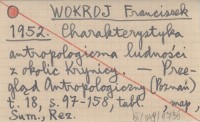 WOKROJ Franciszek
1952. Charakterystyka
antropologiczna ludności
z okolic Krynicy. Prze-
gląd Antropologiczny (Poznań)
t. 18, s. 97-158, tabl. map,
Sum., Rez.